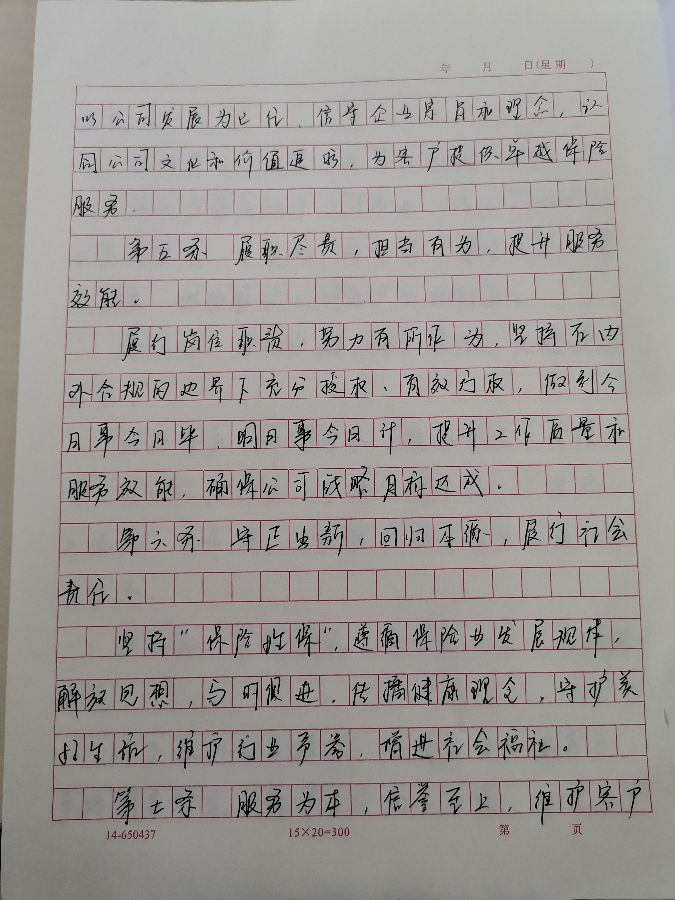 年 月 日(星期 )
以公司发展为己任,信守企业宗旨和理念,认
同公司文化和价值追求,为客户提供卓越保险
服务.
第五条 履职尽责,担当有为,提升服务
效能。
履行岗位职责,努力有所作为,坚持在内
外合规的边界下充分授权、有效行权,做到今
日事今日毕,明日事今日计,提升工作质量和
服务效能,确保公司战略目标达成。
第六条 守正出新,回归本源,履行社会
责任。
坚持"保险姓保",遵循保险业发展规律,
解放思想,与时俱进,传播健康理念,守护美
好生活,维护行业声誉,增进社会福祉。
第七条 服务为本,信誉至上,维护客户
14-650437 15×20=300 第 页